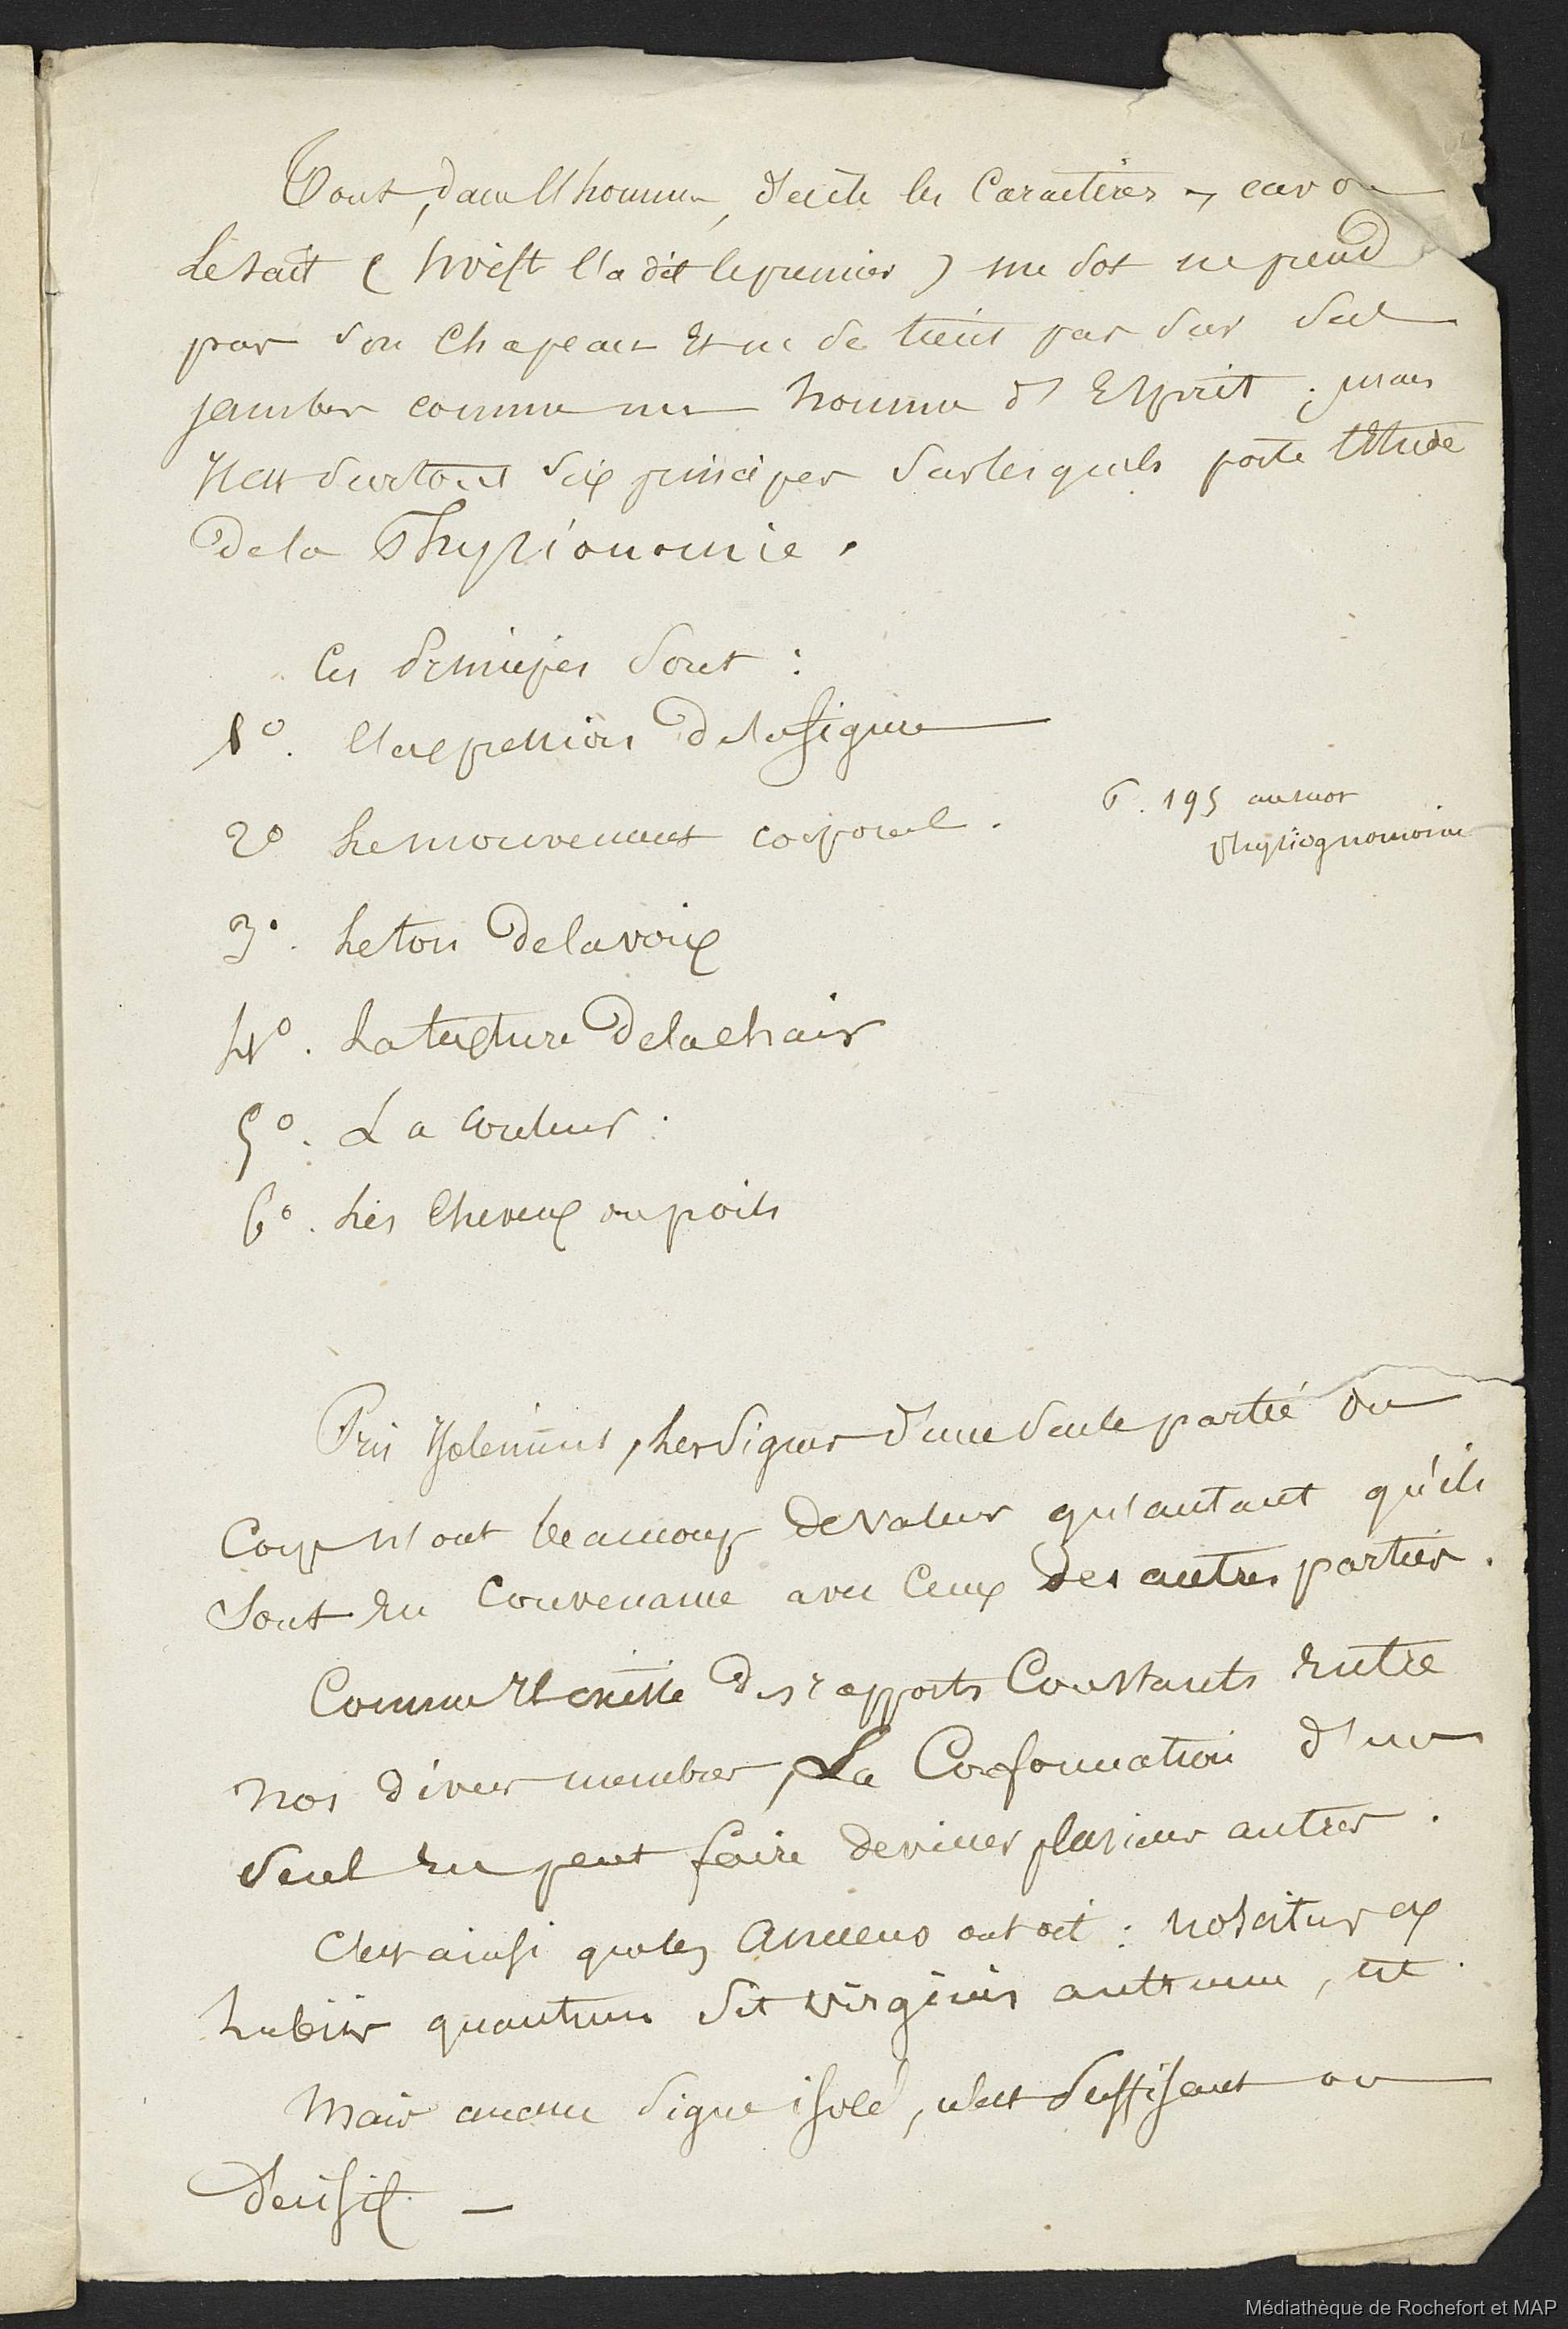 Tout, dans l'homme, décèle les Caractères, car on
le sait ( Swift l'a dit le premier ) un sot ne prend
pas son Chapeau Et ne se tient pas sur ses
jambes comme un homme d'Esprit ; mais
il est surtout six principes sur lesquels porte l'Etude
de la Physionomie.
Ces principes sont :
1º. l'expression de la figure
2º Le mouvement corporel.
P. 195 au mot
Physiognomonie
3º. Le ton de la voix
4º. La texture de la chair
5º. La couleur.
6º. Les Cheveux ou poils
Pris isolément, Les signes d'une seule partie du
Corps n'ont beaucoup de valeur qu'autant qu'ils
Sont En Convenance avec Ceux des autres parties.
Comme Il existe des rapports Constants Entre
nos divers membres, La Conformation d'un
seul En peut faire deviner plusieurs autres.
C'est ainsi que les Anciens ont dit : noscitur ex
labiis quantum sit virginis antrum,
Mais aucun signe isolé, n'est suffisant ou
décisif. —
Médiathèque de Rochefort et MAP